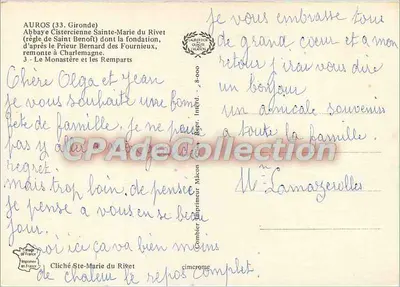 AUROS (33. Gironde)
Abbaye Cistercienne Sainte-Marie du Rivet
(règle de Saint Benoît) dont la fondation,
d'après le Prieur Bernard des Fournieux,
remonte à Charlemagne.
3 - Le Monastère et les Remparts
Chère Olga et Jean
je vous souhaite une bonne
fête de famille. je ne pais
pas y
regret.
mais trop loin. de pensée
je pense a vous en se beau
jour.
moi ici ça va bien moins
de chaleur le repos complet.
Combier Imprimeur Mâcon
je vous embrasse tous
de grand cœur et a mon
retour j'irai vous dire
un bonjour
un amical souvenir
a toute la famille.
Mme Lamazerolles
CPAdeCollection
Cliché Ste-Marie du Rivet
cimcrome